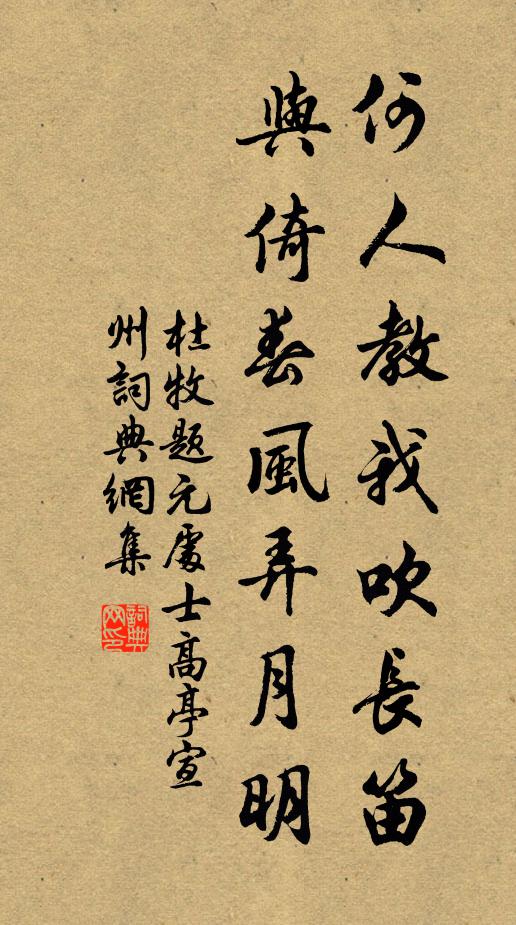 何人教我吹長笛
與倚春風弄月明
杜牧題元處士高亭宣
州詞典網集
詞典網印